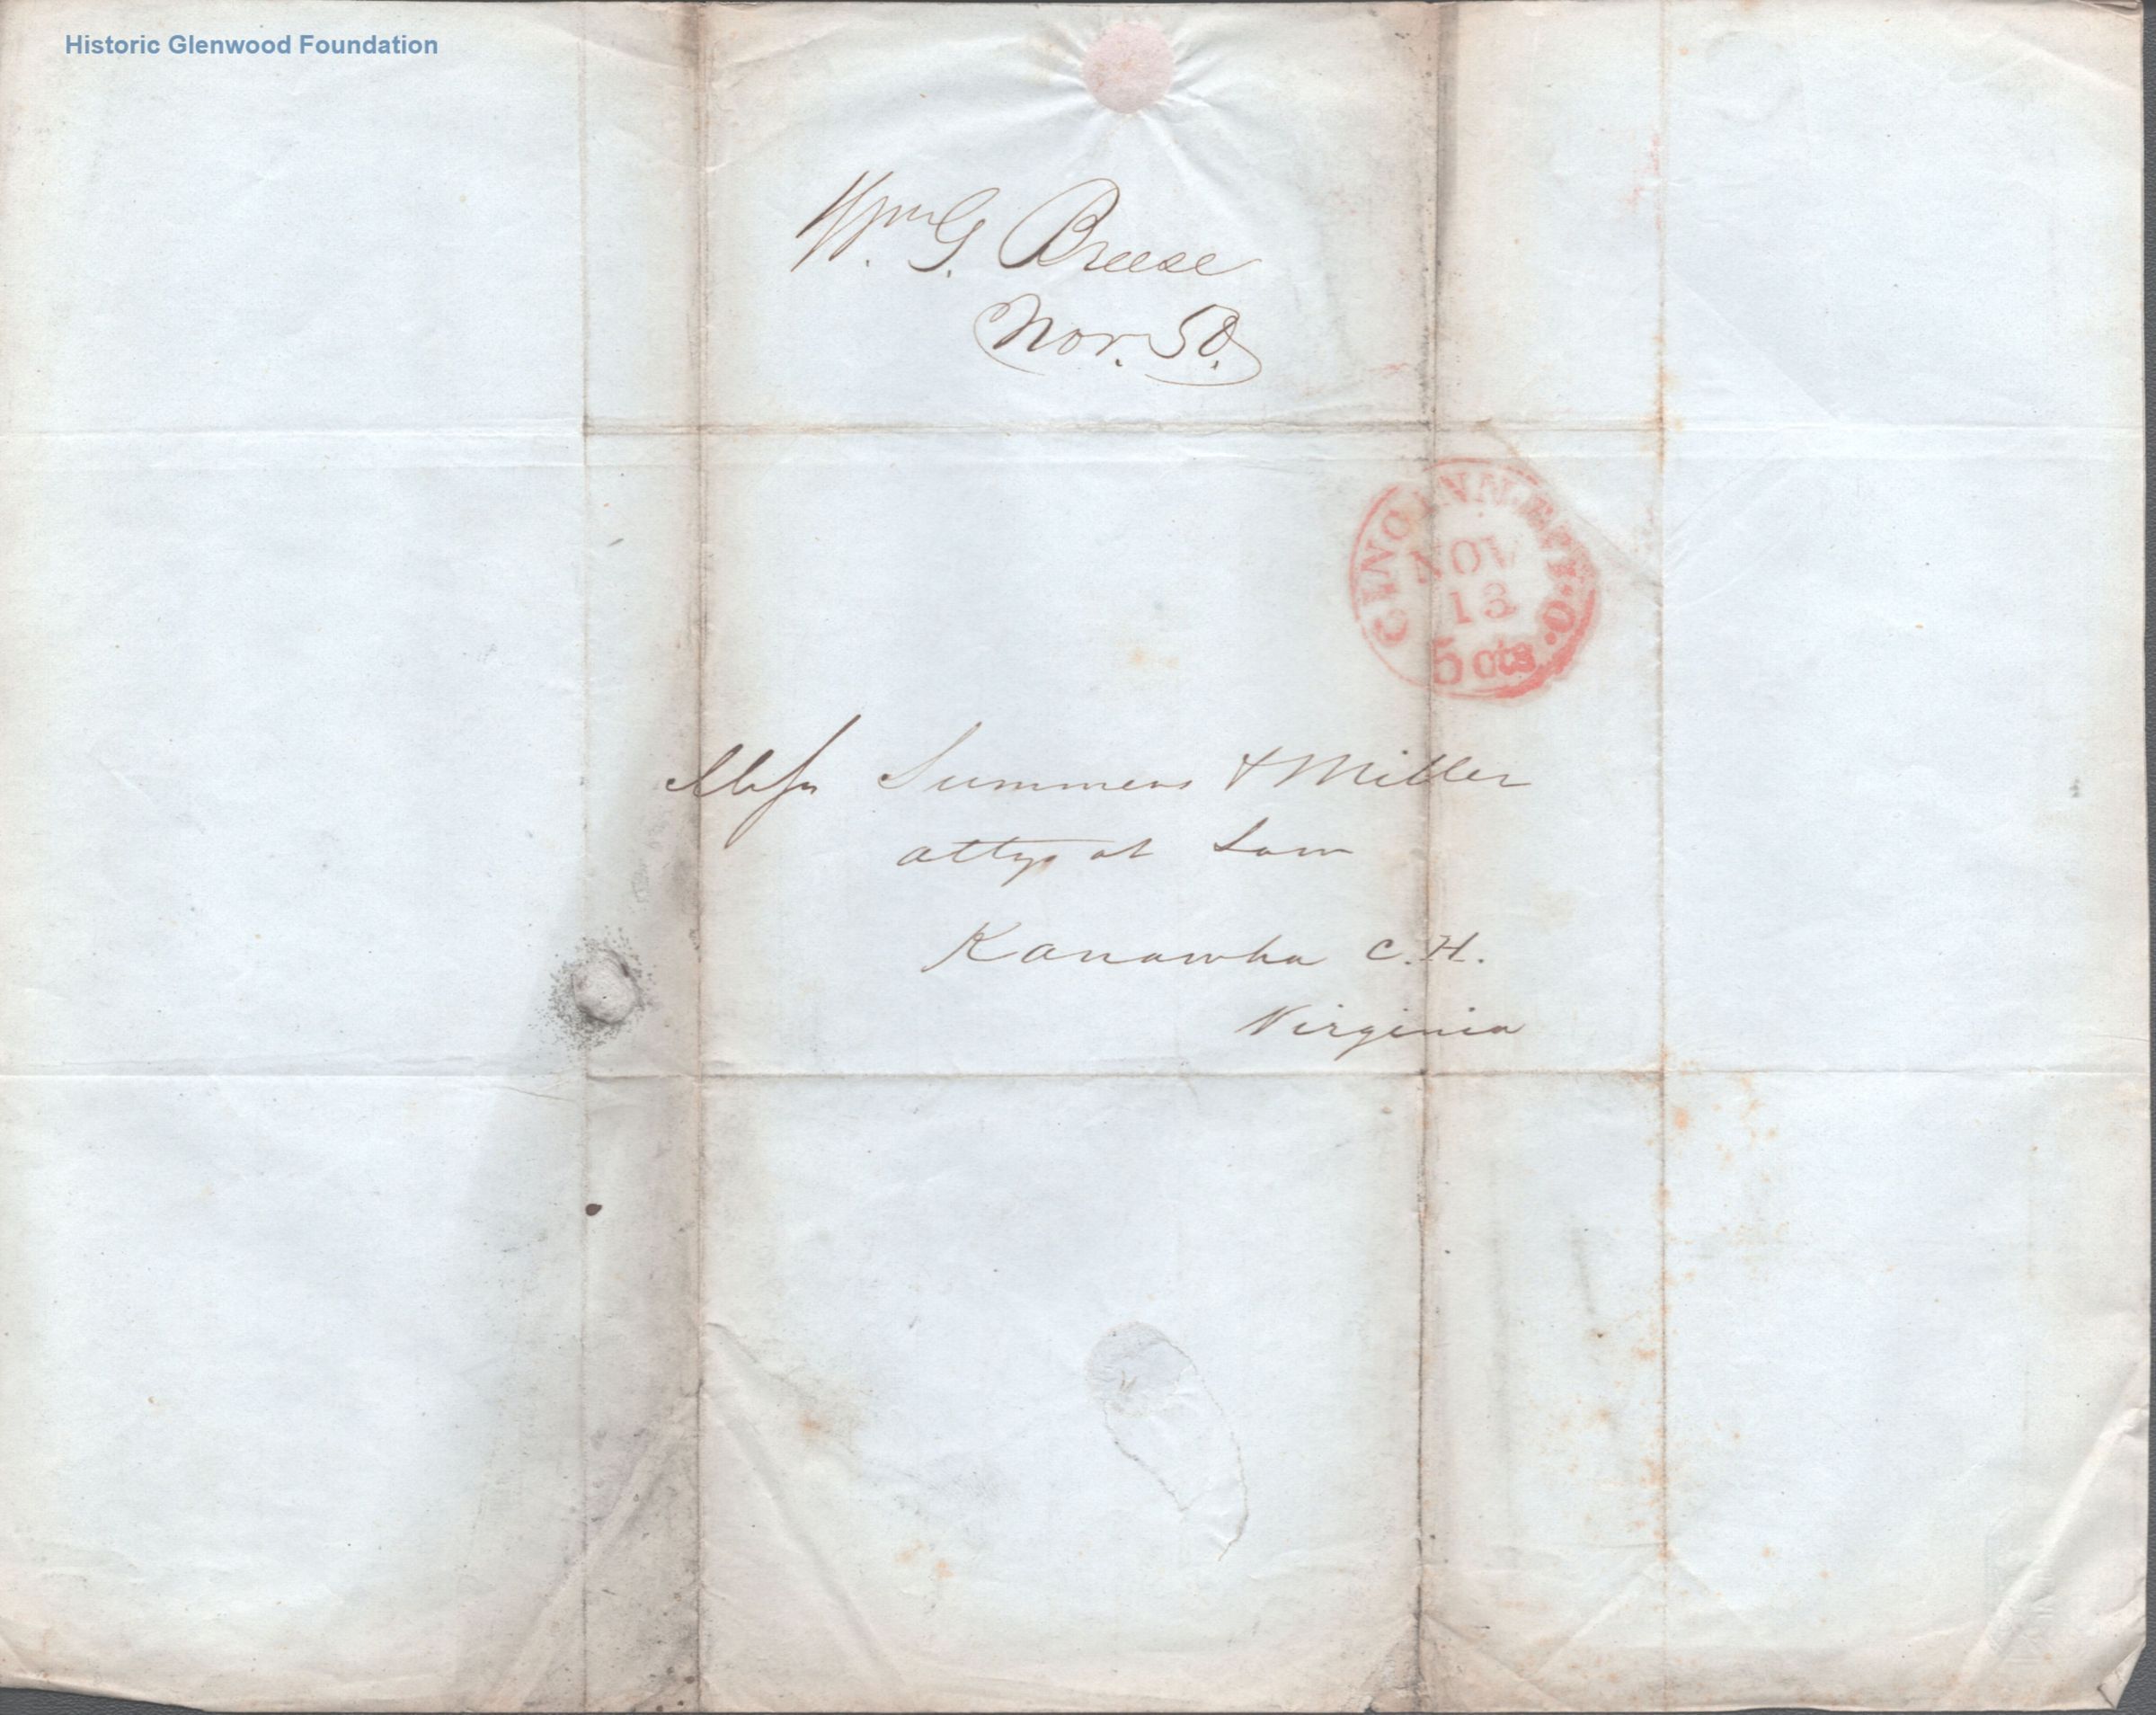 Historic Glenwood Foundation
Wm. G. Breese
Nov. 50.
CINCINNATI. O.
NOV
13
5 cts.
Messrs Summers & Miller
attys at Law
Kanawha C.H.
Virginia